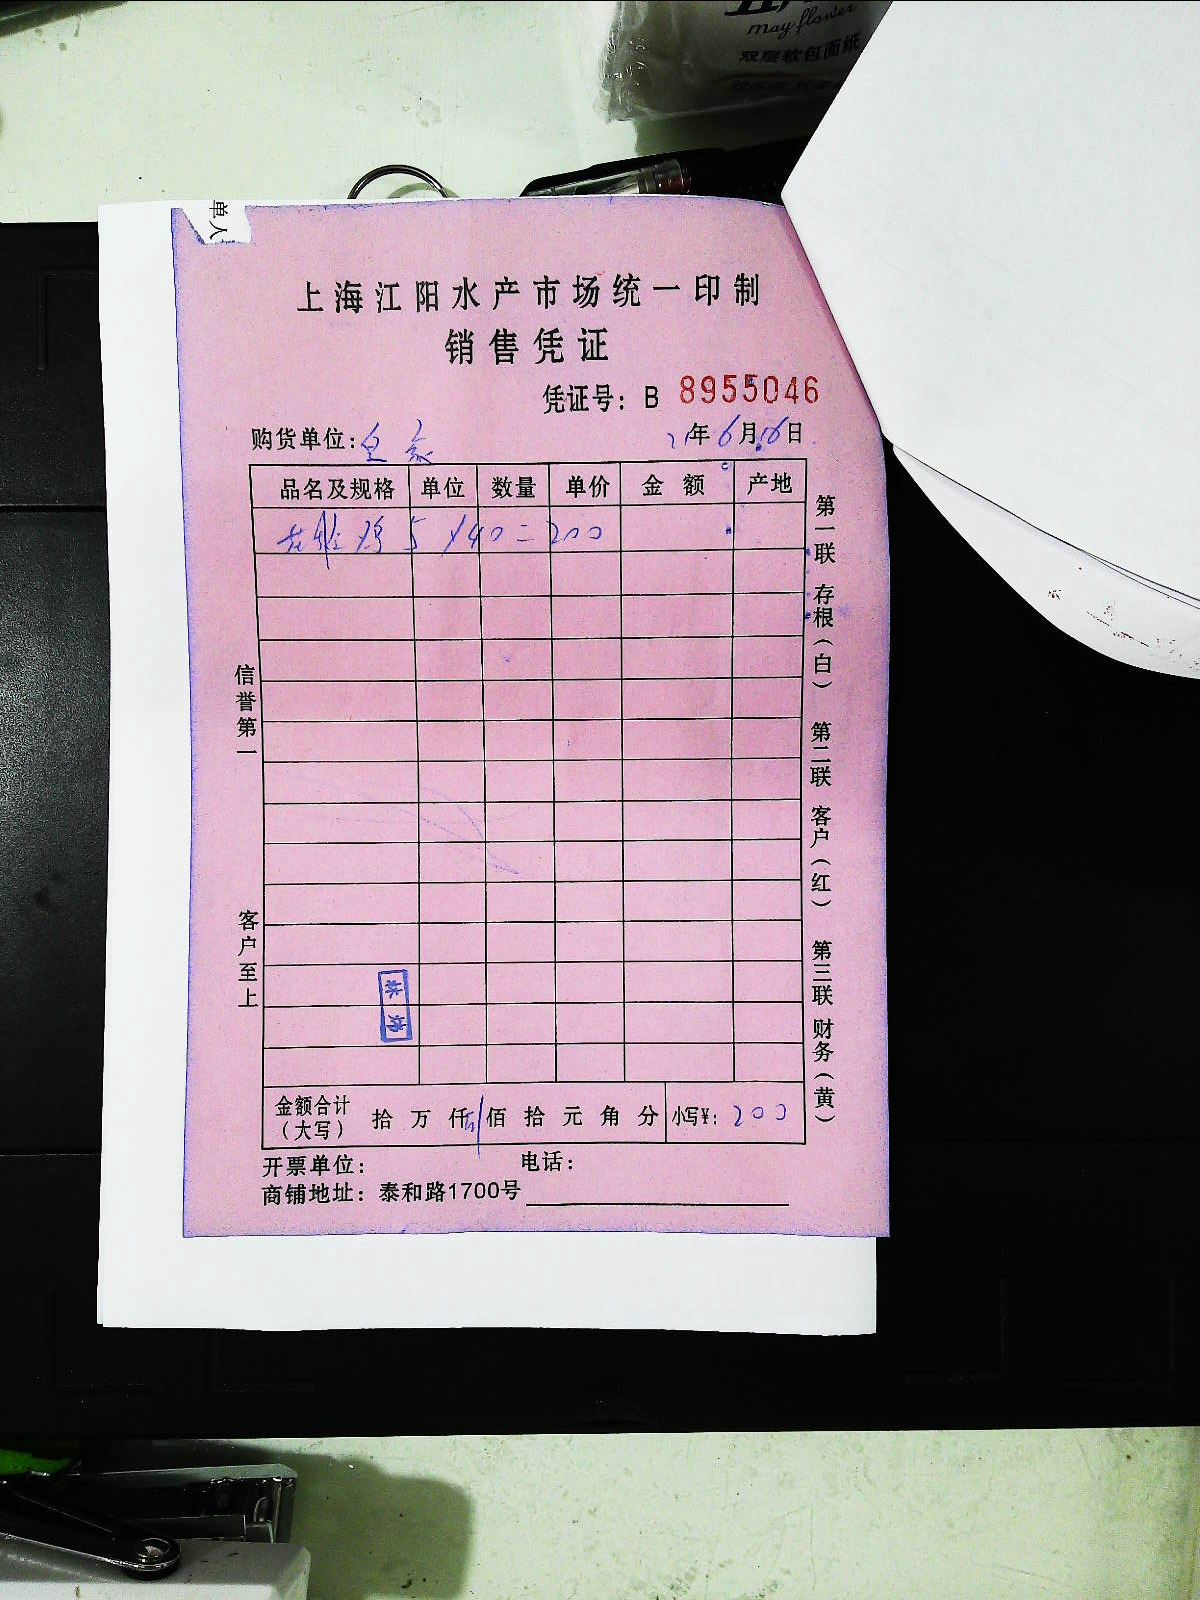 may flower
双层软包面纸
单人
上海江阳水产市场统一印制
销售凭证
凭证号：B 8955046
购货单位：皇家 21年6月16日
品名及规格 单位 数量 单价 金额 产地
5 ×40=200
信誉第一
客户至上
第一联 存根（白） 第二联 客户（红） 第三联 财务（黄）
金额合计（大写） 拾 万 仟 佰 拾 元 角 分 小写¥：200
开票单位： 电话：
商铺地址：泰和路1700号